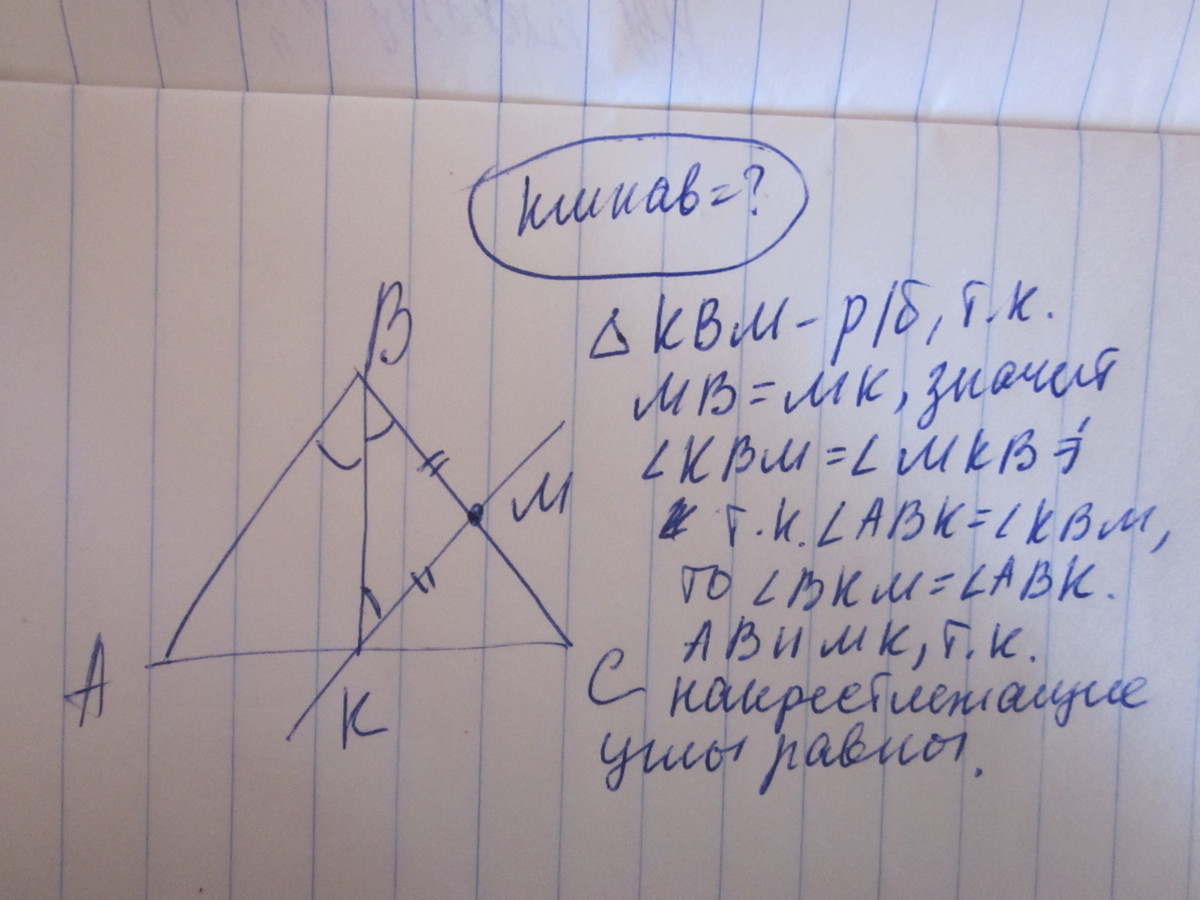 кикнав=?
B
M
A
K
C
△ KBM - р/б, т.к.
MB = MK, значит
∠KBM = ∠MKB =;
т.к. ∠ABK = ∠KBM,
то ∠BKM = ∠ABK.
AB ∥ MK, т.к.
накрестлежащие
углы равны.